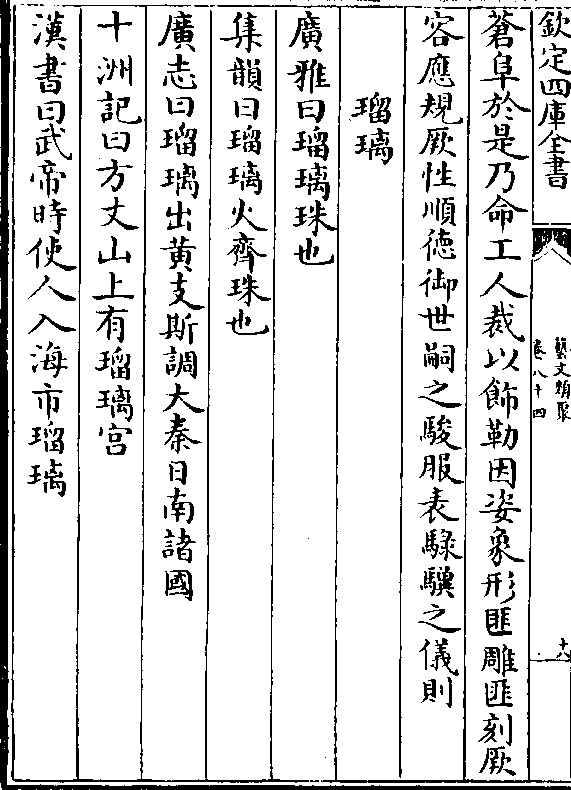 欽定四庫全書
藝文類聚
卷八十四
十八
蒼阜於是乃命工人裁以飾勒因姿象形匪雕匪刻厥
容應規厥性順徳御世嗣之駿服表騄驥之儀則
瑠璃
廣雅曰瑠璃珠也
集韻曰瑠璃火齊珠也
廣志曰瑠璃出黄支斯調大秦日南諸國
十洲記曰方丈山上有瑠璃宫
漢書曰武帝時使人入海市瑠璃